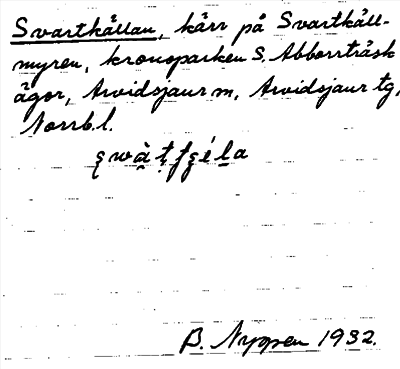 Svartkällan, kärr på Svartkäll-
myren, kronoparken S. Abborrträsk
ägor, Arvidsjaur m, Arvidsjaur tg,
Norrb. l.
B. Nygren 1932.